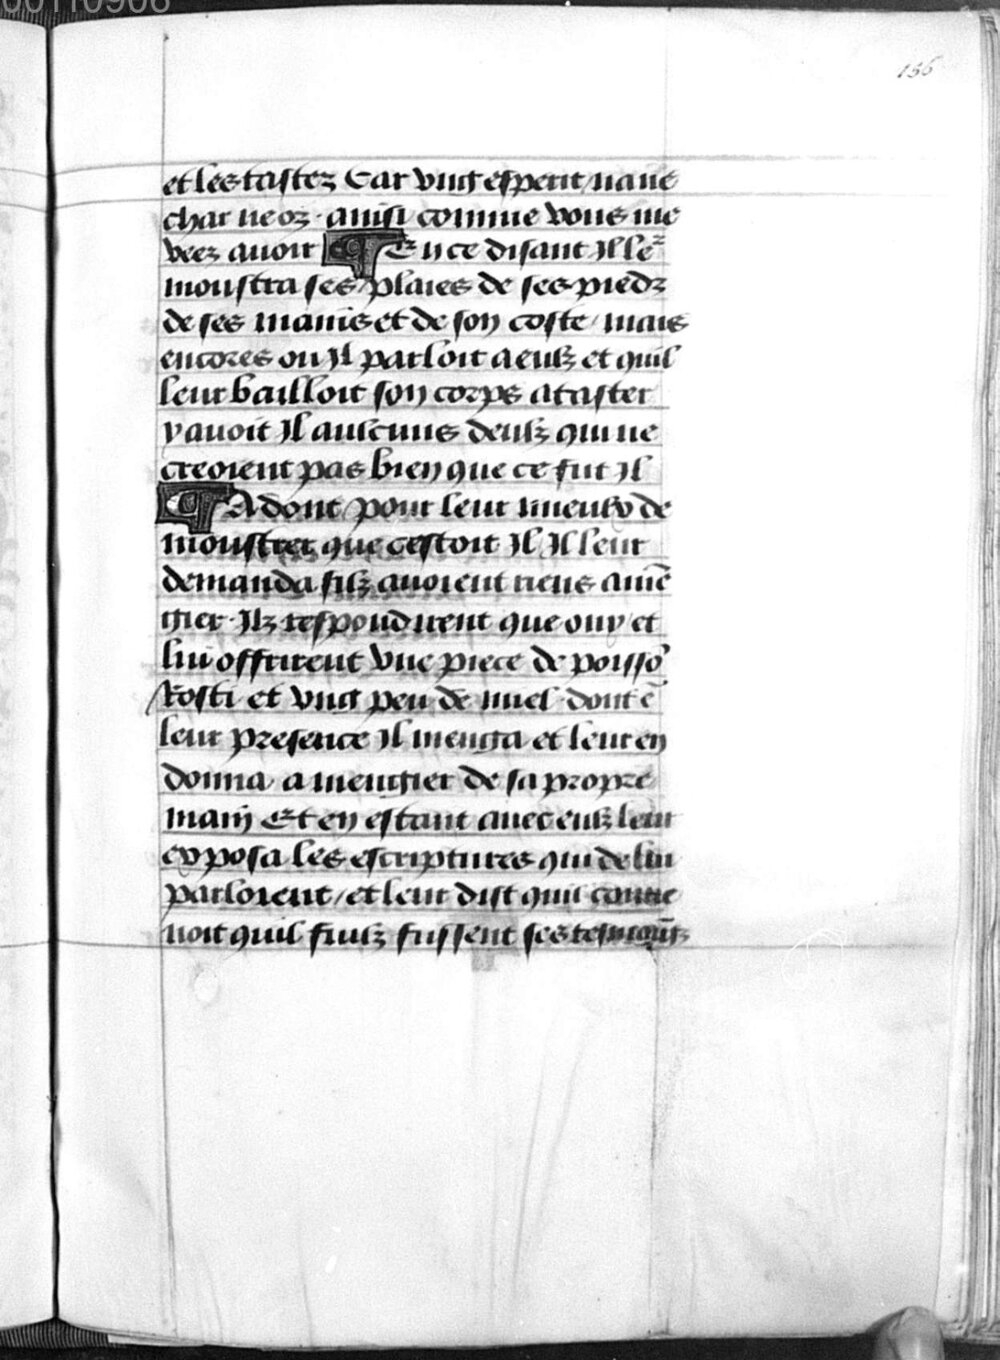 00110908
156
et les tastez Car ung esperit na ne
char ne oz · ainsi comme vous me
veez avoir ¶ En ce disant Il le᷒
moustra ses plaies de ses piedz
de ses mains et de son coste / mais
encores ou Il parloit a eulz et quil
leur bailloit son corps a taster
y avoit Il aulcuns deulz qui ne
creoient pas bien que ce fut Il
¶ Adont / pour leur mieulx de
moustrer que cestoit Il Il leur
demanda silz avoient riens a mē
gier · Ilz respondirent que ouy et
lui offrirent une piece de poissō
Rosti et ung peu de miel · dont ē
leur presence Il menga et leur en
donna a mengier de sa propre
main Et en estant avec eulz leur
exposa les escriptures qui de lui
parloient / et leur dist quil conue
noit quilz fussent ses tesmoīgz